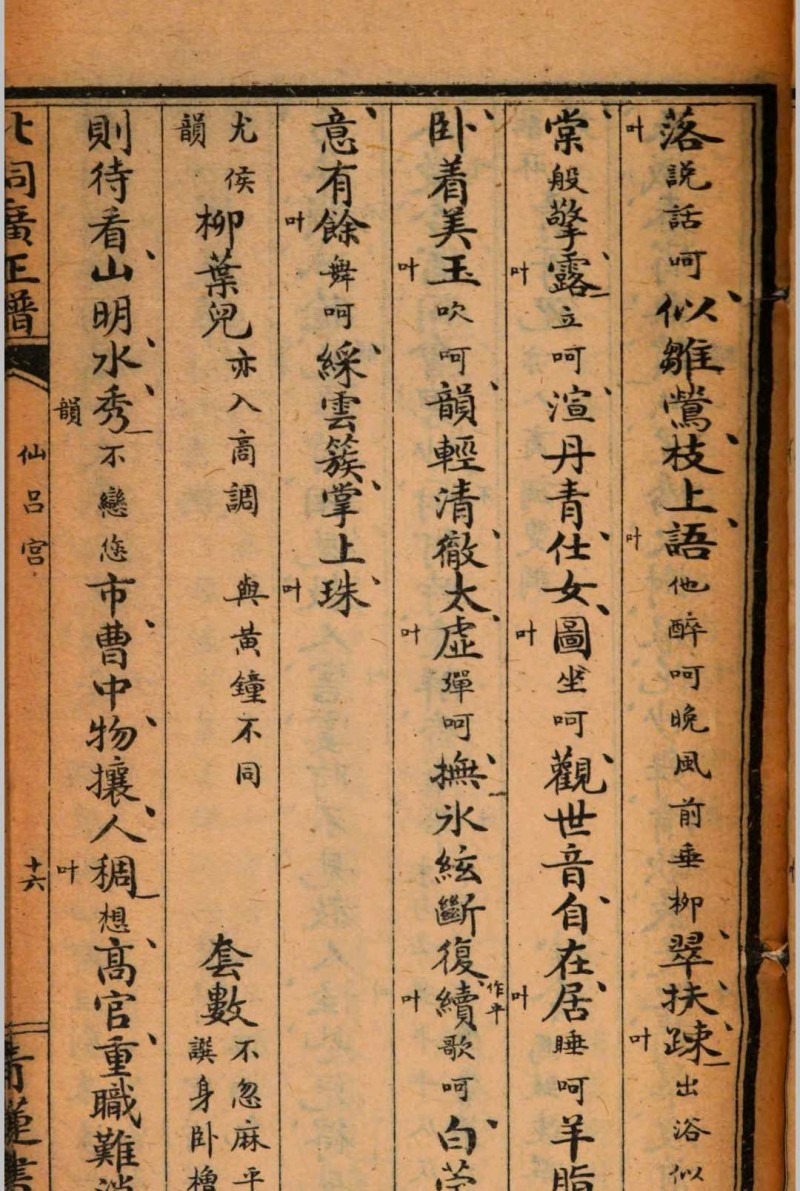 落叶説話呵似雛鶯枝上語叶他醉呵晚風前垂柳翠扶踈叶出浴似
棠般擎露叶立呵渲丹青仕女圖叶坐呵觀世音自在居叶睡呵羊脂
卧着美玉叶吹呵韻輕清徹太虛叶彈呵撫冰絃斷復續作平叶歌呵白
意有餘叶舞呵綵雲簇掌上珠叶
尤侯韻柳葉兒亦入商調 與黃鐘不同 套數不忽麻平
譔身卧櫓
則待看山明水秀韻不戀您市曹中物攘人稠叶想高官重職難
詞廣正譜 仙呂宮 十六 青蓮書